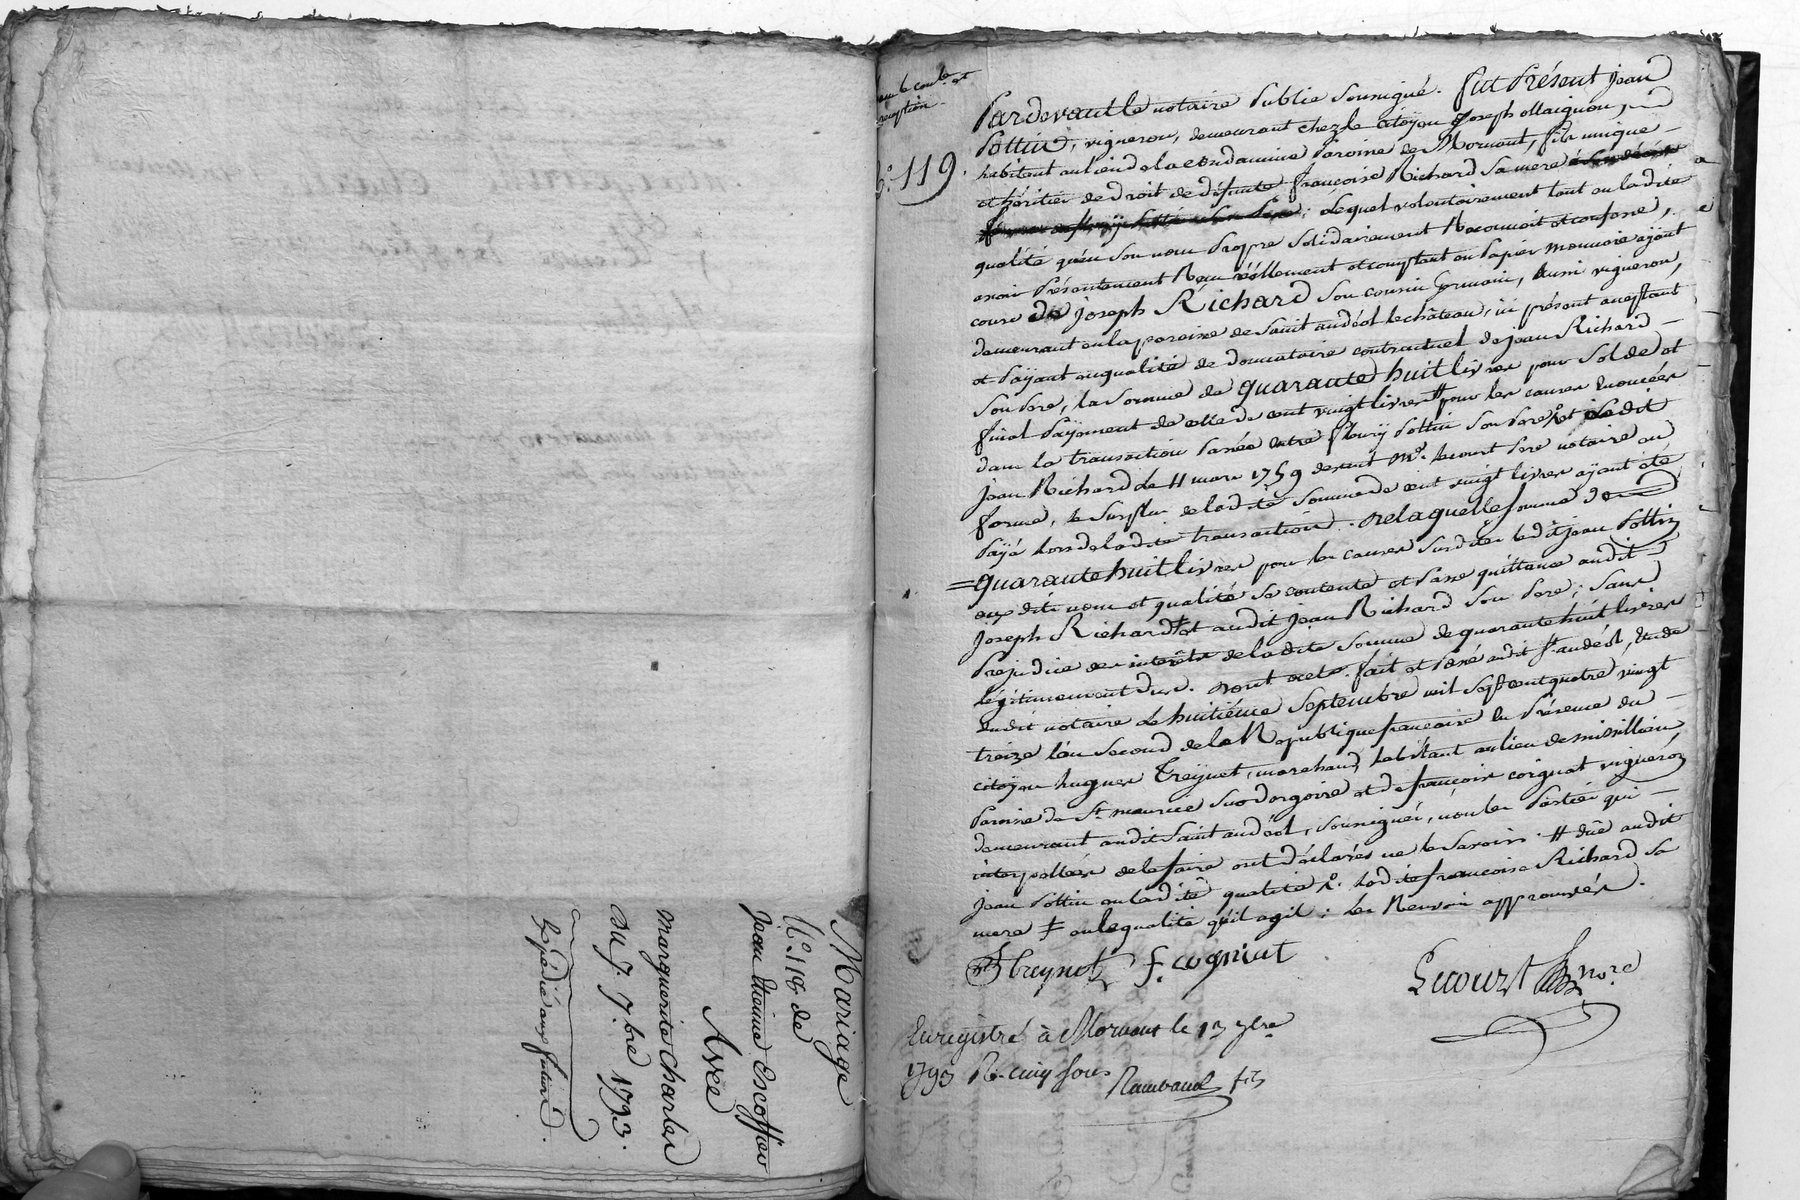 Mariage
N.º 118. de
Jean Etienne Escoffier
Avec
Marguerite Charles
Du 7. 7.bre 1793.
Expédié aux futurs.
reception.
N.º 119.
Pardevant le notaire Public soussigné. fut Présent Jean
Pottin, vigneron, demeurant chez le citoÿen Joseph Maignon,
habitant au lieu de la Condamine Paroisse de Mornant, fils unique
et héritier de droit de défunte françoise Richard sa mere
; Lequel volontairement tant en la dite
qualité qu'en son nom Propre solidairement Reconnoit et confesse,
avoir Présentement Reçu réellement et comptant en Papier monnoie aÿant
cours de Joseph Richard son cousin Germain, aussi vigneron,
demeurant en la paroisse de Saint andéol le château, ici présent acceptant
et Païant en qualité de donnataire contractuel de Jean Richard
son Pere, la somme de quarante huit livres pour solde et
final Païement de celle de cent vingt livres # pour les causes énoncées
dans la transaction Passée entre fleurÿ Pottin son Pere et ledit
Jean Richard le 11 mars 1759 devant Mº. Lecourt Pere notaire en
forme, le surplus de la dite somme de cent vingt livres aÿant été
Païé lors de la dite transaction. De laquelle somme de
= quarante huit livres pour les causes susdites ledit Jean Pottin
aux dits nom et qualité se contente et Passe quittance audit
Joseph Richard ‡ et audit Jean Richard son Pere; sans
Prejudice des intérêts de la dite somme de quarante huit livres
légitimement dus. Dont acte. fait et Passé audit St. andéol, Etude
dudit notaire Le huitiéme Septembre mil sept cent quatre vingt
treize l'an second de la Republique francaise En Présence du
citoÿen hugues Treÿnet, marchand, habitant au lieu de missillieu,
Paroisse de St. maurice sur dargoire et de francois coignat vigneron,
demeurant audit Saint andéol, soussignés, non les Parties qui
interpellées de le faire ont déclarés ne le savoir. # düe audit
Jean Pottin en la dite qualité. ladite francoise Richard sa
mere ‡ en la qualité qu'il agit; les Renvois approuvés.
treynet f. cogniat Lecourt nore
Enregistré à Mornant le 13 7bre
1793 R. cinq sous
Raimbaud fils